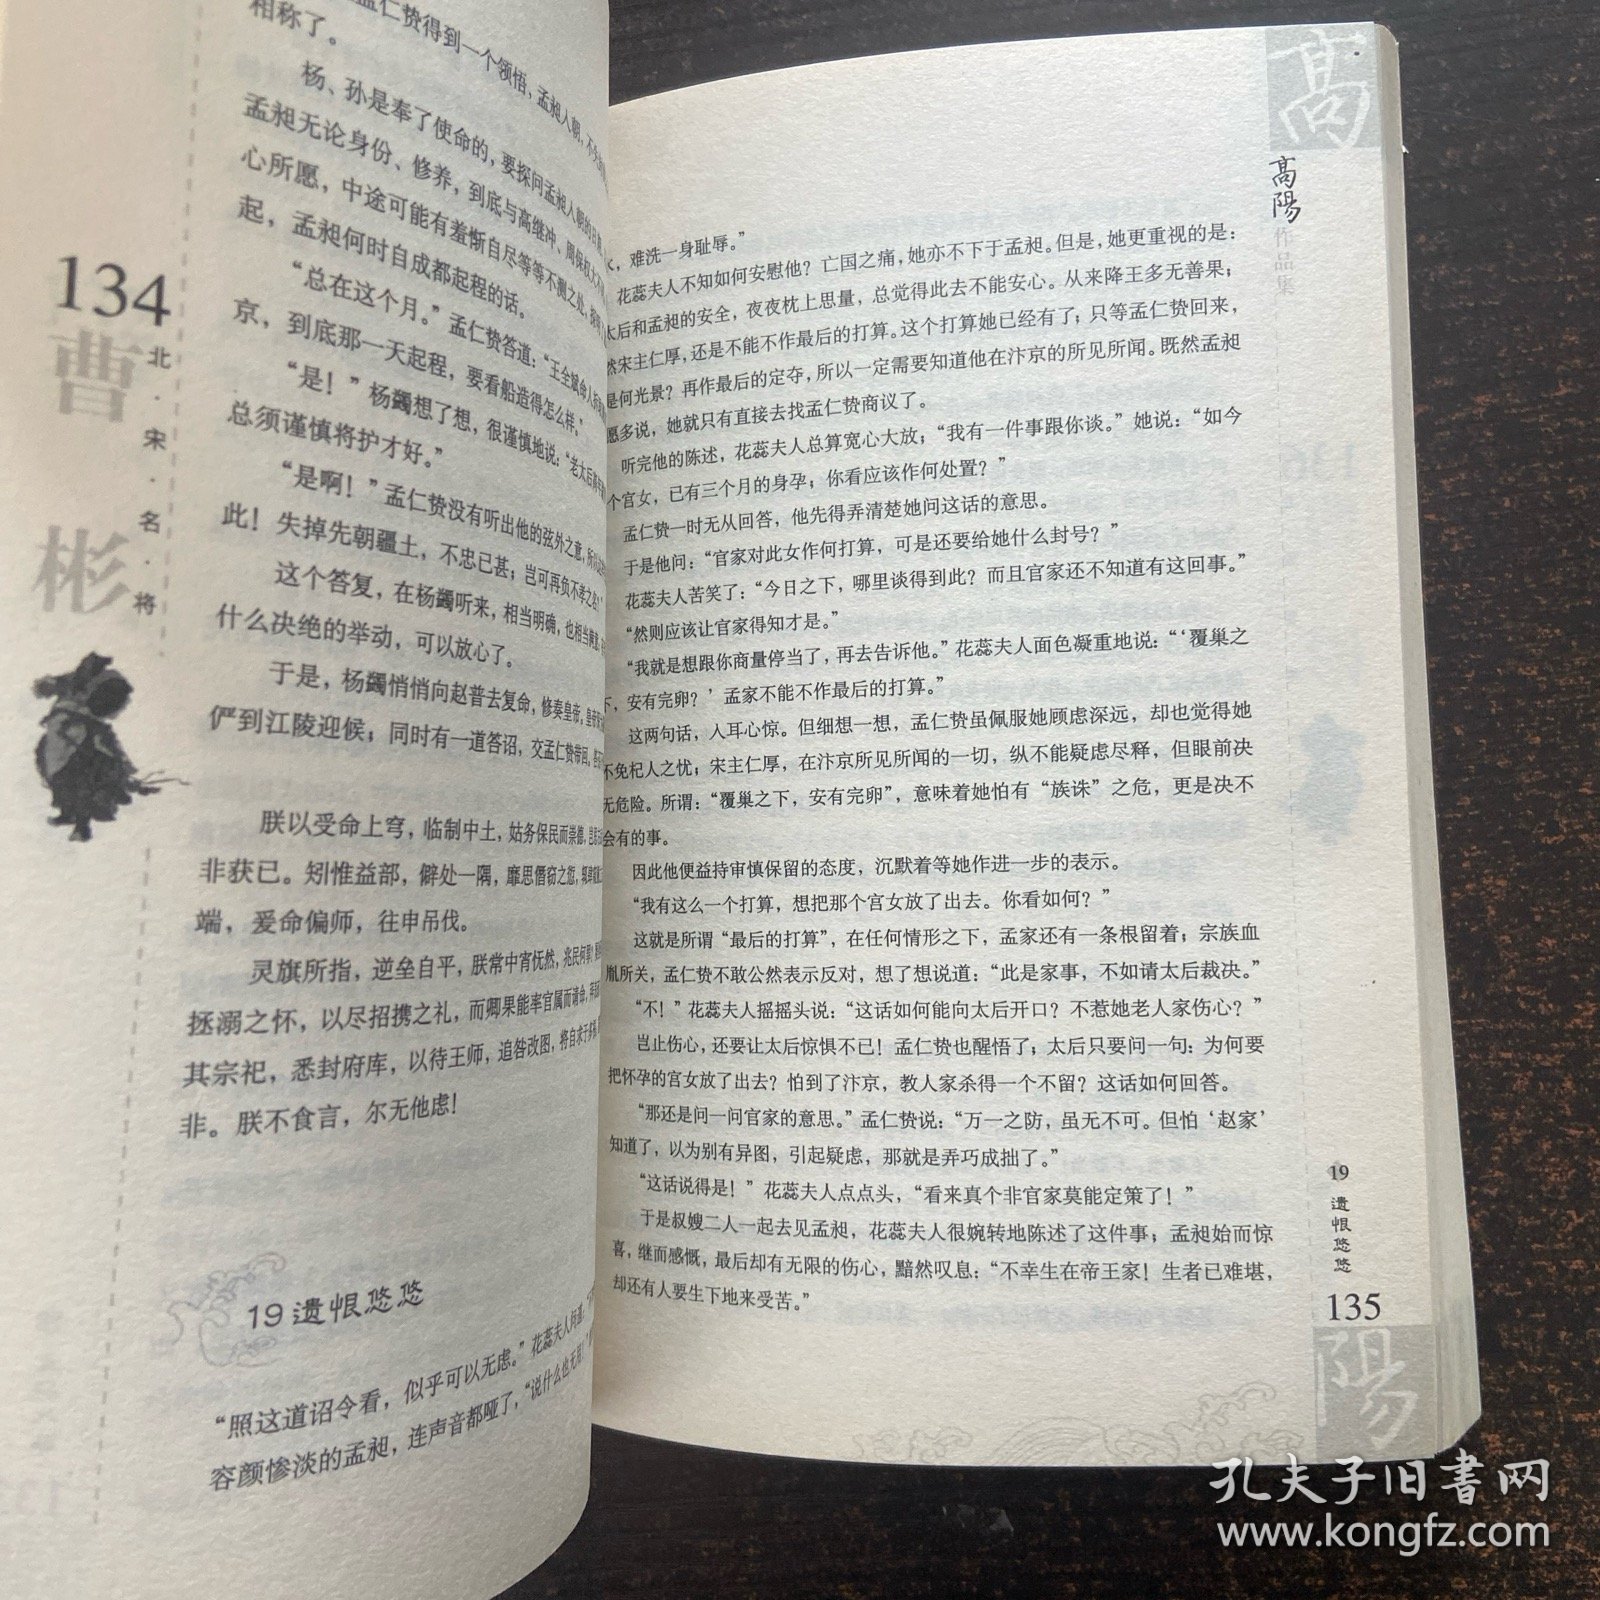 134
曹彬
北·宋·名·将
孟仁贽得到一个领悟，孟昶入朝，不
相称了。
杨、孙是奉了使命的，要探问孟昶入朝的
孟昶无论身份、修养，到底与高继冲、周保权大
心所愿，中途可能有羞惭自尽等等不测之处，
起，孟昶何时自成都起程的话。
“总在这个月。”孟仁贽答道：“王全斌命人
京，到底那一天起程，要看船造得怎么样。”
“是！”杨蠲想了想，很谨慎地说：“老太后
总须谨慎将护才好。”
“是啊！”孟仁贽没有听出他的弦外之意，所
此！失掉先朝疆土，不忠已甚；岂可再负不孝之名！”
这个答复，在杨蠲听来，相当明确，也相当满意，
什么决绝的举动，可以放心了。
于是，杨蠲悄悄向赵普去复命，修奏皇帝。皇帝
俨到江陵迎候；同时有一道答诏，交孟仁贽带回，
朕以受命上穹，临制中土，姑务保民而崇德，
非获已。矧惟益部，僻处一隅，靡思僭窃之愆，
端，爰命偏师，往申吊伐。
灵旗所指，逆垒自平，朕常中宵怃然，兆民何辜！
拯溺之怀，以尽招携之礼，而卿果能率官属而请命，
其宗祀，悉封府库，以待王师，追咎改图，将自求于多福，
非。朕不食言，尔无他虑！
19 遗恨悠悠
“照这道诏令看，似乎可以无虑。”花蕊夫人问道，
容颜惨淡的孟昶，连声音都哑了，“说什么也无用！
高
高陽作品集
水，难洗一身耻辱。”
花蕊夫人不知如何安慰他？亡国之痛，她亦不下于孟昶。但是，她更重视的是：
太后和孟昶的安全，夜夜枕上思量，总觉得此去不能安心。从来降王多无善果；
然宋主仁厚，还是不能不作最后的打算。这个打算她已经有了；只等孟仁贽回来，
是何光景？再作最后的定夺，所以一定需要知道他在汴京的所见所闻。既然孟昶
愿多说，她就只有直接去找孟仁贽商议了。
听完他的陈述，花蕊夫人总算宽心大放；“我有一件事跟你谈。”她说：“如今
个宫女，已有三个月的身孕；你看应该作何处置？”
孟仁贽一时无从回答，他先得弄清楚她问这话的意思。
于是他问：“官家对此女作何打算，可是还要给她什么封号？”
花蕊夫人苦笑了：“今日之下，哪里谈得到此？而且官家还不知道有这回事。”
“然则应该让官家得知才是。”
“我就是想跟你商量停当了，再去告诉他。”花蕊夫人面色凝重地说：“‘覆巢之
下，安有完卵？’孟家不能不作最后的打算。”
这两句话，入耳心惊。但细想一想，孟仁贽虽佩服她顾虑深远，却也觉得她
不免杞人之忧；宋主仁厚，在汴京所见所闻的一切，纵不能疑虑尽释，但眼前决
无危险。所谓：“覆巢之下，安有完卵”，意味着她怕有“族诛”之危，更是决不
会有的事。
因此他便益持审慎保留的态度，沉默着等她作进一步的表示。
“我有这么一个打算，想把那个宫女放了出去。你看如何？”
这就是所谓“最后的打算”，在任何情形之下，孟家还有一条根留着；宗族血
胤所关，孟仁贽不敢公然表示反对，想了想说道：“此是家事，不如请太后裁决。”
“不！”花蕊夫人摇摇头说：“这话如何能向太后开口？不惹她老人家伤心？”
岂止伤心，还要让太后惊惧不已！孟仁贽也醒悟了；太后只要问一句：为何要
把怀孕的宫女放了出去？怕到了汴京，教人家杀得一个不留？这话如何回答。
“那还是问一问官家的意思。”孟仁贽说：“万一之防，虽无不可。但怕‘赵家’
知道了，以为别有异图，引起疑虑，那就是弄巧成拙了。”
“这话说得是！”花蕊夫人点点头，“看来真个非官家莫能定策了！”
于是叔嫂二人一起去见孟昶，花蕊夫人很婉转地陈述了这件事；孟昶始而惊
喜，继而感慨，最后却有无限的伤心，黯然叹息：“不幸生在帝王家！生者已难堪，
却还有人要生下地来受苦。”
19 遗恨悠悠
135
陽
孔夫子旧書网
www.kongfz.com